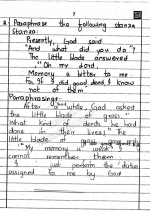 2. Paraphrase the following stanza
Stanza:
Presently, God said
"And what did you do"?
The little blade answered
"Oh my lord,
Memory is bitter to me
For, if I did good deeds I know
not of them"
Paraphrasing:
After God asked
the little blade of grass,
What kind of deeds he had
done in their lives? The
little blade of
"My memory is weak I
cannot remember them
I just perform the duties
assigned to me by God